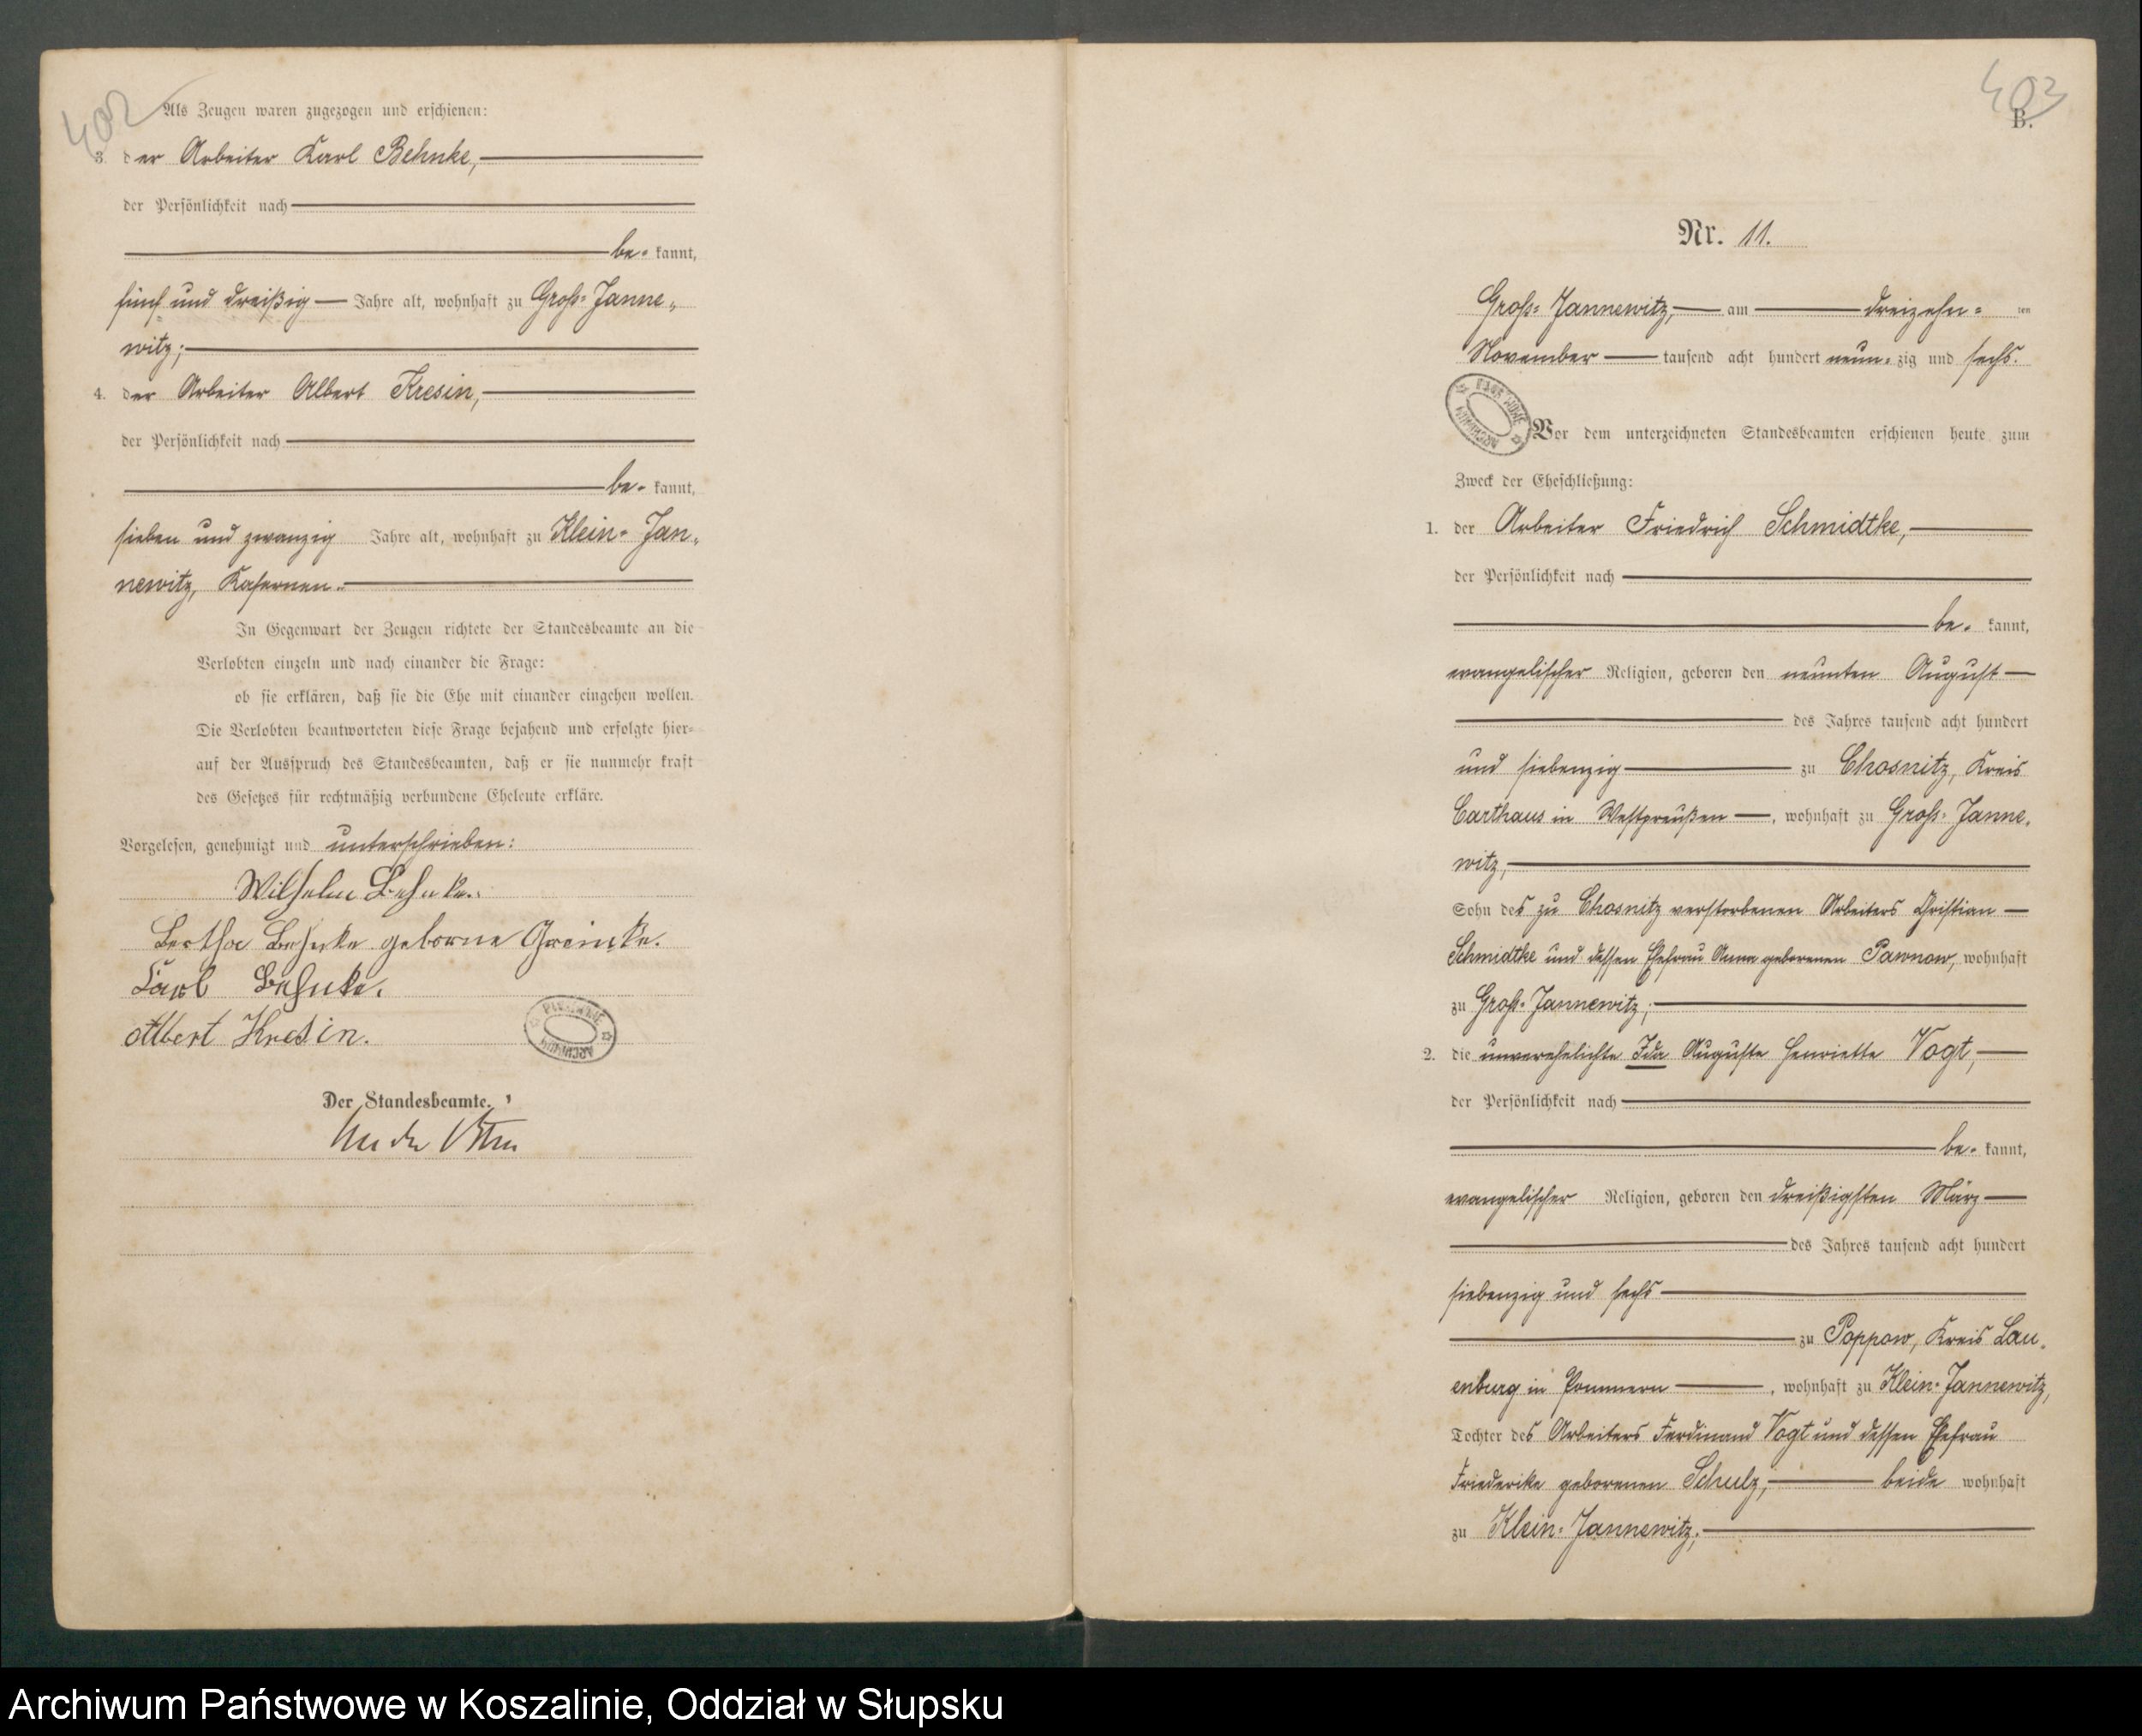 402
Als Zeugen waren zugezogen und erschienen:
3. der Arbeiter Karl Behnke,
der Persönlichkeit nach
be= kannt,
fünf und dreißig Jahre alt, wohnhaft zu Groß=Janne=
witz;
4. der Arbeiter Albert Kresin,
der Persönlichkeit nach
be= kannt,
sieben und zwanzig Jahre alt, wohnhaft zu Klein=Jan=
newitz, Kasernen.
In Gegenwart der Zeugen richtete der Standesbeamte an die
Verlobten einzeln und nach einander die Frage:
ob sie erklären, daß sie die Ehe mit einander eingehen wollen.
Die Verlobten beantworteten diese Frage bejahend und erfolgte hier=
auf der Ausspruch des Standesbeamten, daß er sie nunmehr kraft
des Gesetzes für rechtmäßig verbundene Eheleute erkläre.
Vorgelesen, genehmigt und unterschrieben:
Wilhelm Behnke.
Bertha Behnke geborne Greinke.
Karl Behnke.
Albert Kresin.
ARCHIWUM PAŃSTWOWE
Der Standesbeamte.
403
B.
Nr. 11.
Groß=Jannewitz, am dreizehn= ten
November tausend acht hundert neun=zig und sechs.
ARCHIWUM PAŃSTWOWE
Vor dem unterzeichneten Standesbeamten erschienen heute zum
Zweck der Eheschließung:
1. der Arbeiter Friedrich Schmidtke,
der Persönlichkeit nach
be= kannt,
evangelischer Religion, geboren den neunten August
des Jahres tausend acht hundert
und siebenzig zu Chosnitz, Kreis
Carthaus in Westpreußen, wohnhaft zu Groß=Janne=
witz,
Sohn des zu Chosnitz verstorbenen Arbeiters Christian
Schmidtke und dessen Ehefrau Anna geborenen Pawnow, wohnhaft
zu Groß=Jannewitz;
2. die unverehelichte Ida Auguste Henriette Vogt,
der Persönlichkeit nach
be= kannt,
evangelischer Religion, geboren den dreißigsten März
des Jahres tausend acht hundert
siebenzig und sechs
zu Poppow, Kreis Lau=
enburg in Pommern, wohnhaft zu Klein=Jannewitz,
Tochter des Arbeiters Ferdinand Vogt und dessen Ehefrau
Friederike geborenen Schulz, beide wohnhaft
zu Klein=Jannewitz;
Archiwum Państwowe w Koszalinie, Oddział w Słupsku